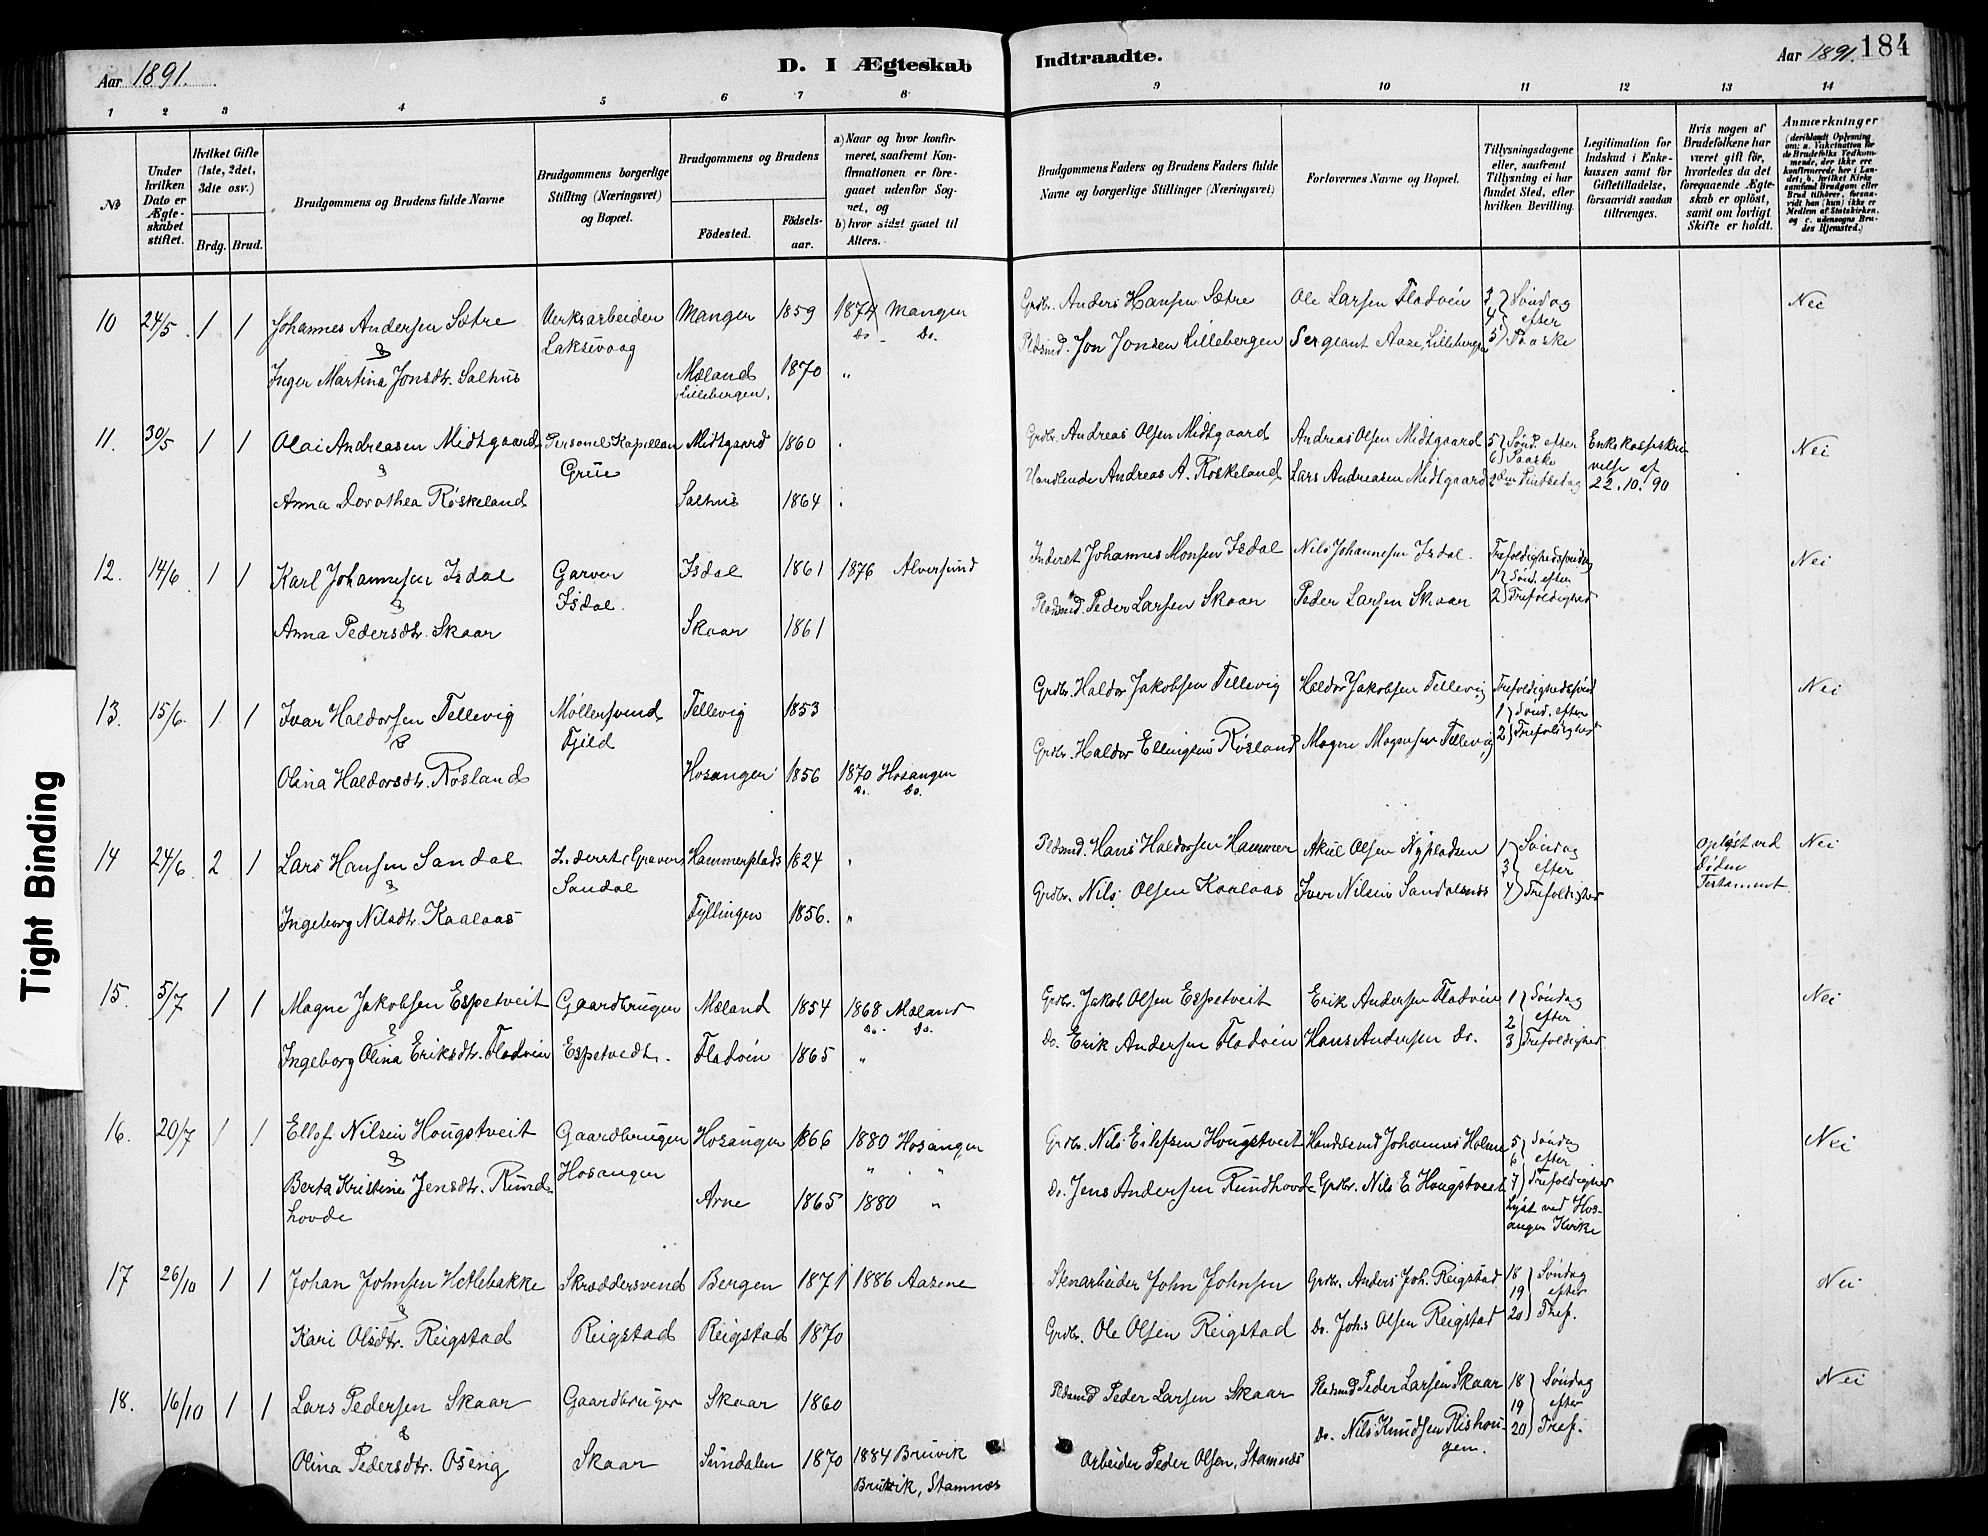 Aar 1891.
D. I Ægteskab
Indtraadte.
Aar 1891.
184
1 2 3 4 5 6 7 8
9 10 11 12 13 14
No
Under hvilken Dato er Ægteskabet stiftet.
Hvilket Gifte (1ste, 2det, 3die osv.)
Brdg. Brud.
Brudgommens og Brudens fulde Navne
Brudgommens borgerlige Stilling (Næringsvei) og Bopæl.
Brudgommens og Brudens
Födested.
Födselsaar.
a) Naar og hvor konfirmeret, saafremt Konfirmationen er foregaaet udenfor Sognet, og
b) hvor sidst gaaet til Alters.
Brudgommens Faders og Brudens Faders fulde Navne og borgerlige Stillinger (Næringsvei)
Forlovernes Navne og Bopæl.
Tillysningsdagene eller, saafremt Tillysning ei har fundet Sted, efter hvilken Bevilling.
Legitimation for Indskud i Enkekassen samt for Giftetilladelse, forsaavidt saadan tiltrænges.
Hvis nogen af Brudefolkene har været gift för, hvorledes da det foregaaende Ægteskab er oplöst, samt om lovligt Skifte er holdt.
Anmærkninger
10 24/5 1 1 Johannes Andersen Sætre & Verksarbeider Laksevaag Manger 1859 1874 Manger Do. Do.
Grdbr. Anders Hansen Sætre Ole Larsen Fladvén 3 4 5 Söndag efter Paaske Nei
Inger Martina Jonsdtr. Salhus Mæland Lillebergen, 1870 "
Pldsmd. Jon Jonsen Lillebergen Sergeant Aase, Lillebergen
11. 30/5 1 1 Olai Andreasen Midtgaard & Personel Kapellan Grue Midtgaard 1860
Grdbr. Andreas Olsen Midtgaard Andreas Olsen Midtgaard 5 6 Sönd. efter Paaske 2den Pintsedag Enkekasseskrivelse af 22.10.90 Nei
Anna Dorothea Røskeland Salhus 1864
Handlende Andreas A. Røskeland Lars Andreasen Midtgaard
12. 14/6 1 1 Karl Johannesen Isdal & Garver Isdal. Isdal 1861 1876 Alversund
Inderst Johannes Monsen Isdal Nils Johannesen Isdal. Trefoldighedssöndag 1 2 Sönd. efter Trefoldighed Nei
Anna Pedersdtr. Skaar Skaar 1861
Pladsmd. Peder Larsen Skaar Peder Larsen Skaar
13. 15/6 1 1 Ivar Haldorsen Tellevig & Møllersvend Fjeld Tellevig 1853
Grdbr. Haldor Jakobsen Tellevig Haldor Jakobsen Tellevig Trefoldighedssönd 1 2 Sönd. efter Trefoldighed Nei
Olina Haldorsdtr. Røsland Hosanger 1856 1870 Hosanger Do. Do.
Grdbr. Haldor Ellingsen Røsland Mogne Mognesen Tellevig
14 24/6 2 1 Lars Hansen Sandal & Inderst (Graver) Sandal Hammerplads 1824 "
Pldsmd. Hans Haldorsen Hammer Akil Olsen Nypladsen 1 3 4 Söndag efter Trefoldighed Opløst ved Døden Testament. Nei
Ingeborg Nilsdtr. Kaalaas Tyllingen 1856. "
Grdbr. Nils Olsen Kaalaas Iver Nilsen Sandalsnes
15. 5/7 1 1 Magne Jakobsen Espetveit & Gaardbruger Mæland 1854 1868 Mæland Do. Do.
Grdbr. Jakob Olsen Espetveit Erik Andersen Fladvén 1 2 3 Söndag efter Trefoldighed Nei
Ingeborg Olina Eriksdtr. Fladvén Espetvedt. Fladvén 1865 "
Do. Erik Andersen Fladvén Hans Andersen Do.
16. 20/7 1 1 Ellef Nilsen Hougstveit & Gaardbruger Hosanger Hosanger 1866 1880 Hosanger " "
Grdbr. Nils Eilefsen Hougstveit Handelsmd Johannes Holme 5 6 7 Söndag efter Trefoldighed Lyst ved Hosanger Kirke Nei
Berta Kristine Jensdtr. Rundhovde Arne 1865 1880 "
Do. Jens Andersen Rundhovde Grdbr. Nils E Hougstveit
17 26/10 1 1 Johan Johnsen Hetlebakke & Skræddersvend Bergen 1871 1886 Aasene
Stenarbeider John Johnsen Grdbr. Anders Joh. Reigstad 18 19 20 Söndag efter Tref. Nei
Kari Olsdtr. Reigstad Reigstad Reigstad 1870
Grdbr. Ole Olsen Reigstad Do. Johs Olsen Reigstad
18. 16/10 1 1 Lars Pedersen Skaar & Gaardbruger Skaar 1860
Pldsmd Peder Larsen Skaar Pladsmd Peder Larsen Skaar 18 19 20 Söndag efter Tref. Nei
Olina Pedersdtr. Oseng Skaar Sundalen 1870 1884 Bruvik Bruvik, Stamnes
Arbeider Peder Olsen, Stamnes Do. Nils Knudsen Rishougen.
Tight Binding